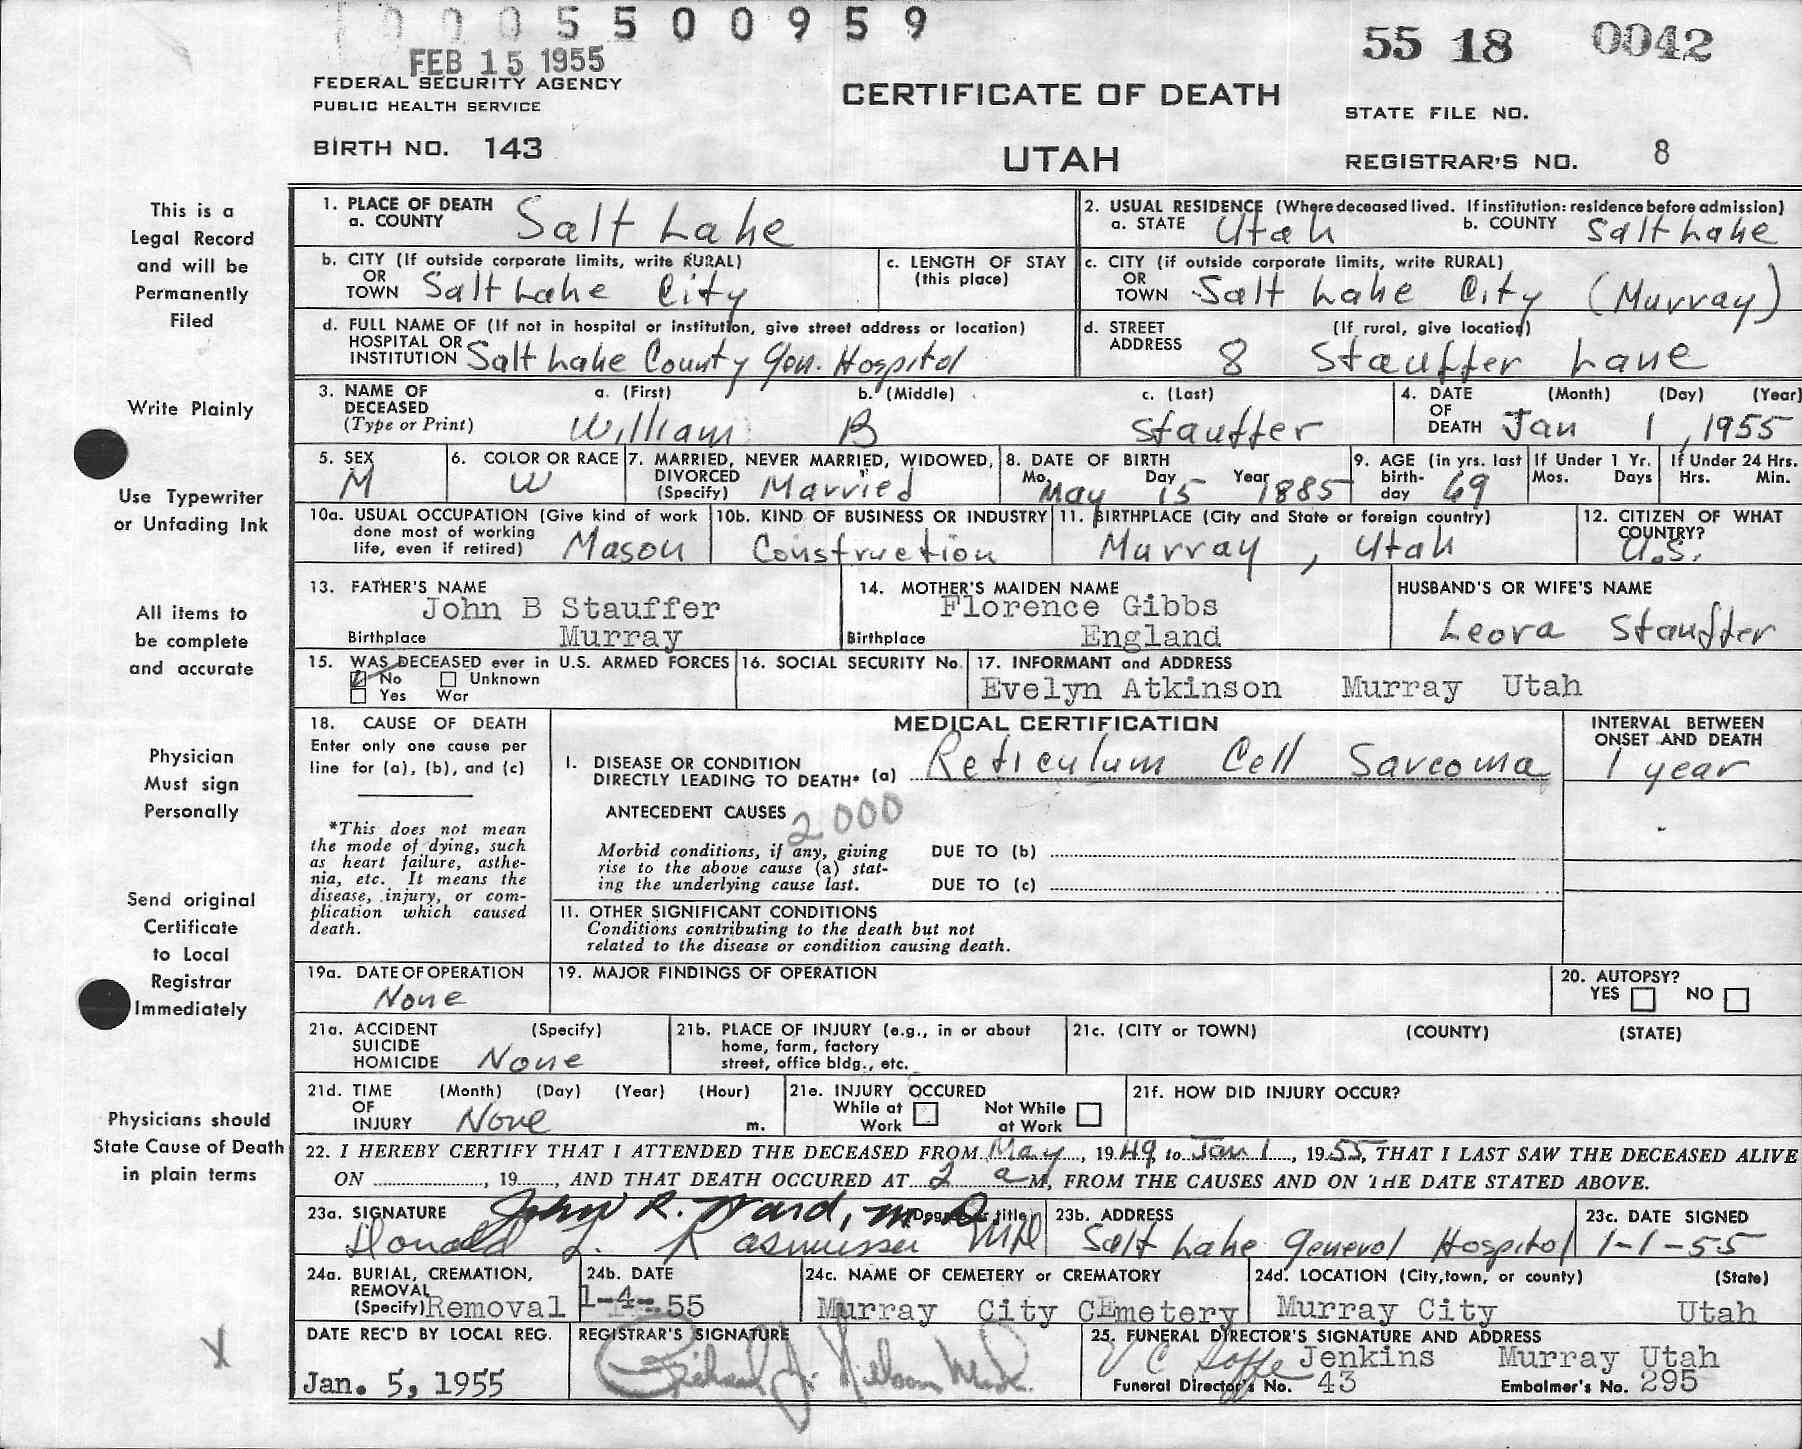 0005500959
FEB 15 1955
55 18 0042
FEDERAL SECURITY AGENCY
PUBLIC HEALTH SERVICE
CERTIFICATE OF DEATH
STATE FILE NO.
BIRTH NO. 143
UTAH
REGISTRAR'S NO. 8
This is a
Legal Record
and will be
Permanently
Filed
Write Plainly
Use Typewriter
or Unfading Ink
All items to
be complete
and accurate
Physician
Must sign
Personally
Send original
Certificate
to Local
Registrar
Immediately
Physicians should
State Cause of Death
in plain terms
X
1. PLACE OF DEATH
a. COUNTY Salt Lake
2. USUAL RESIDENCE (Where deceased lived. If institution: residence before admission)
a. STATE Utah b. COUNTY Salt Lake
b. CITY (If outside corporate limits, write RURAL)
OR
TOWN Salt Lake City
c. LENGTH OF STAY
(this place)
c. CITY (if outside corporate limits, write RURAL)
OR
TOWN Salt Lake City (Murray)
d. FULL NAME OF (If not in hospital or institution, give street address or location)
HOSPITAL OR
INSTITUTION Salt Lake County Gen. Hospital
d. STREET (If rural, give location)
ADDRESS 8 Stauffer Lane
3. NAME OF a. (First) b. (Middle) c. (Last)
DECEASED
(Type or Print) William B Stauffer
4. DATE (Month) (Day) (Year)
OF
DEATH Jan 1, 1955
5. SEX
M
6. COLOR OR RACE
W
7. MARRIED, NEVER MARRIED, WIDOWED,
DIVORCED
(Specify) Married
8. DATE OF BIRTH
Mo. May Day 15 Year 1885
9. AGE (in yrs. last
birth-
day 69
If Under 1 Yr.
Mos. Days
If Under 24 Hrs.
Hrs. Min.
10a. USUAL OCCUPATION (Give kind of work
done most of working
life, even if retired) Mason
10b. KIND OF BUSINESS OR INDUSTRY
Construction
11. BIRTHPLACE (City and State or foreign country)
Murray, Utah
12. CITIZEN OF WHAT
COUNTRY?
U.S.
13. FATHER'S NAME
John B Stauffer
Birthplace Murray
14. MOTHER'S MAIDEN NAME
Florence Gibbs
Birthplace England
HUSBAND'S OR WIFE'S NAME
Leora Stauffer
15. WAS DECEASED ever in U.S. ARMED FORCES
No Unknown
Yes War
16. SOCIAL SECURITY No.
17. INFORMANT and ADDRESS
Evelyn Atkinson Murray Utah
18. CAUSE OF DEATH
Enter only one cause per
line for (a), (b), and (c)
*This does not mean
the mode of dying, such
as heart failure, asthe-
nia, etc. It means the
disease, injury, or com-
plication which caused
death.
MEDICAL CERTIFICATION
I. DISEASE OR CONDITION
DIRECTLY LEADING TO DEATH* (a) Reticulum Cell Sarcoma
ANTECEDENT CAUSES 2000
Morbid conditions, if any, giving
rise to the above cause (a) stat-
ing the underlying cause last.
DUE TO (b)
DUE TO (c)
II. OTHER SIGNIFICANT CONDITIONS
Conditions contributing to the death but not
related to the disease or condition causing death.
INTERVAL BETWEEN
ONSET AND DEATH
1 year
19a. DATE OF OPERATION
None
19. MAJOR FINDINGS OF OPERATION
20. AUTOPSY?
YES NO
21a. ACCIDENT (Specify)
SUICIDE
HOMICIDE None
21b. PLACE OF INJURY (e.g., in or about
home, farm, factory
street, office bldg., etc.
21c. (CITY or TOWN) (COUNTY) (STATE)
21d. TIME (Month) (Day) (Year) (Hour)
OF
INJURY None m.
21e. INJURY OCCURED
While at Work Not While at Work
21f. HOW DID INJURY OCCUR?
22. I HEREBY CERTIFY THAT I ATTENDED THE DECEASED FROM May, 1949 to Jan 1, 1955, THAT I LAST SAW THE DECEASED ALIVE
ON, 19, AND THAT DEATH OCCURED AT 2 a M, FROM THE CAUSES AND ON THE DATE STATED ABOVE.
23a. SIGNATURE John R. Ward, M.D. Degree title
Donald L. Rasmussen MD
23b. ADDRESS
Salt Lake General Hospital
23c. DATE SIGNED
1-1-55
24a. BURIAL, CREMATION,
REMOVAL
(Specify) Removal
24b. DATE
1-4-55
24c. NAME OF CEMETERY or CREMATORY
Murray City CEmetery
24d. LOCATION (City, town, or county) (State)
Murray City Utah
DATE REC'D BY LOCAL REG.
Jan. 5, 1955
REGISTRAR'S SIGNATURE
25. FUNERAL DIRECTOR'S SIGNATURE AND ADDRESS
Jenkins Murray Utah
Funeral Director's No. 43 Embalmer's No. 295